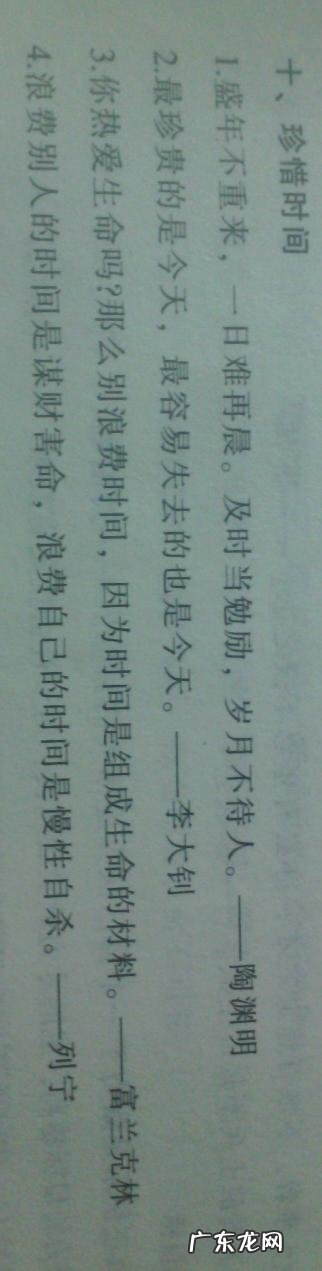 十、珍惜时间
1.盛年不重来，一日难再晨。及时当勉励，岁月不待人。——陶渊明
2.最珍贵的是今天，最容易失去的也是今天。——李大钊
3.你热爱生命吗?那么别浪费时间，因为时间是组成生命的材料。——富兰克林
4.浪费别人的时间是谋财害命，浪费自己的时间是慢性自杀。——列宁
广东龙网